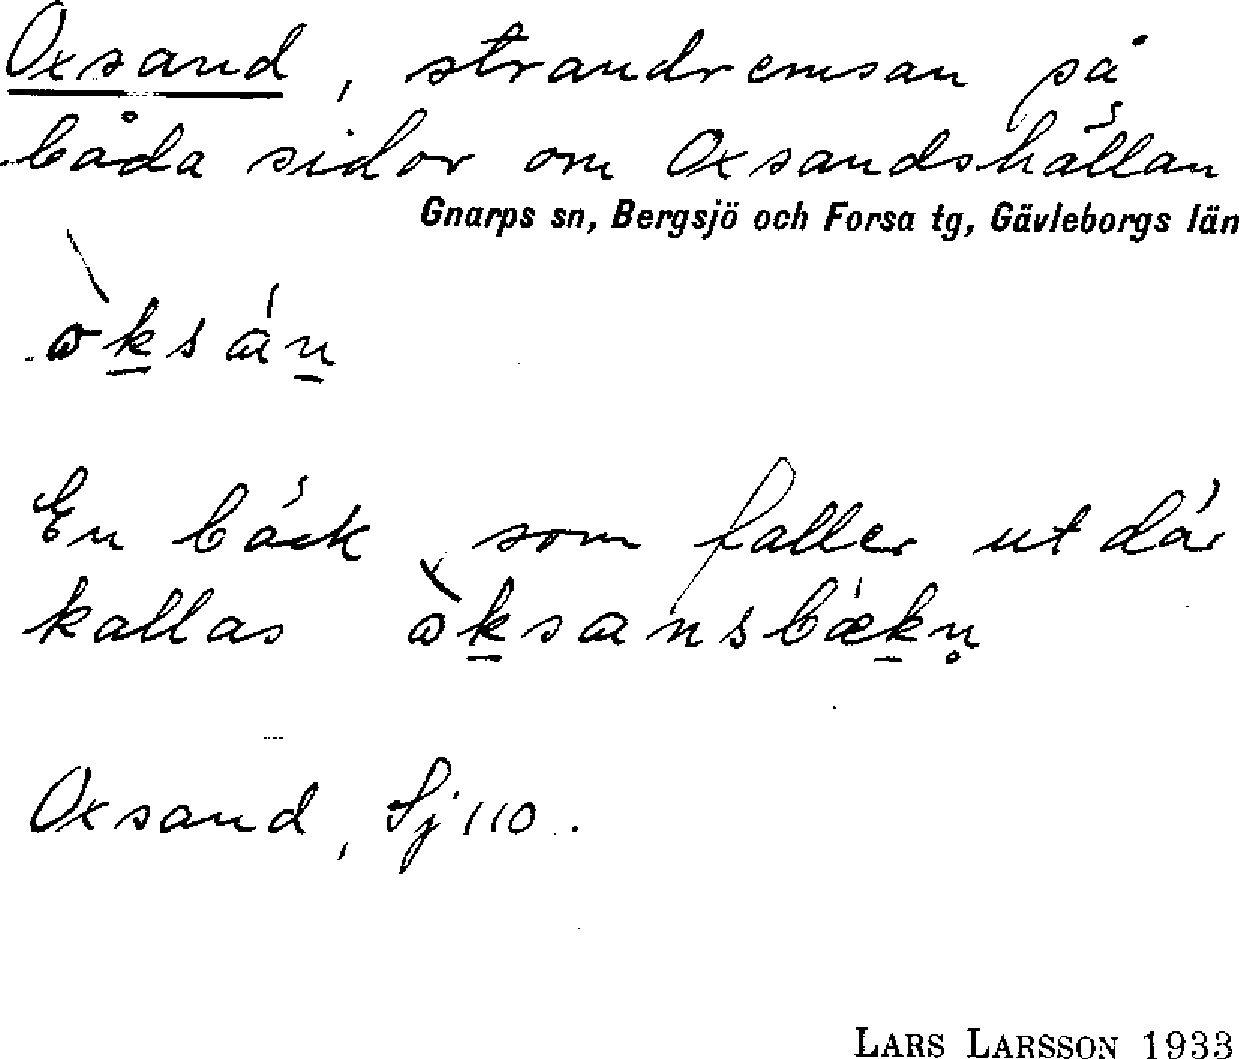 Oxsand, strandremsan på
båda sidor om Oxsandshällan
Gnarps sn, Bergsjö och Forsa tg, Gävleborgs län
ɷ̀ksán
En bäck som faller ut där
kallas ɷ̀ksansbǽkn̥
Oxsand, Sj 110.
LARS LARSSON 1933